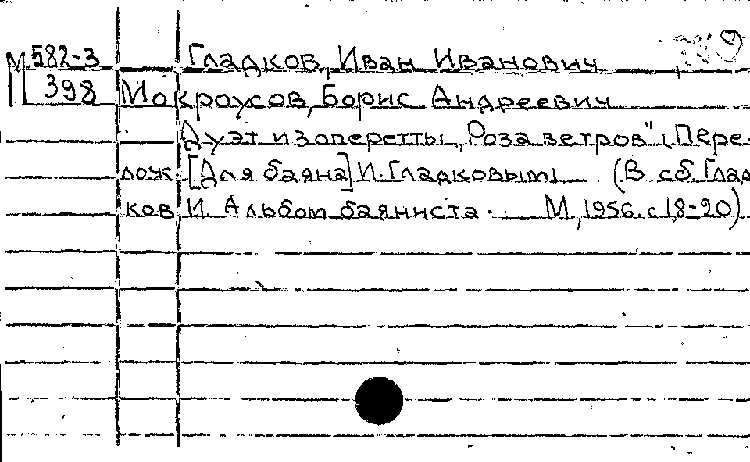 М 582-3 Гладков, Иван Иванович
398 Мокроусов, Борис Андреевич
Дуэт из оперетты „Роза ветров" (Пере-
лож. [Для баяна] И. Гладковым) (В сб. Глад
ков И. Альбом баяниста. М, 1956. с 18-20)